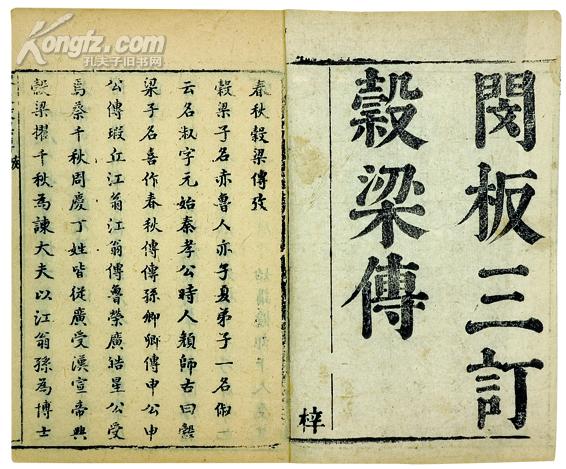 Kongfz.com
孔夫子旧书网
閔板三訂
穀梁傳
梓
春秋穀梁傳攷
穀梁子名赤魯人亦子夏弟子一名俶一
云名淑字元始秦孝公時人顔師古曰穀
梁子名喜作春秋傳傳孫卿卿傳申公申
公傳瑕丘江翁江翁傳魯榮廣皓星公受
焉蔡千秋周慶丁姓皆從廣受漢宣帝興
穀梁擢千秋為諫大夫以江翁孫為博士